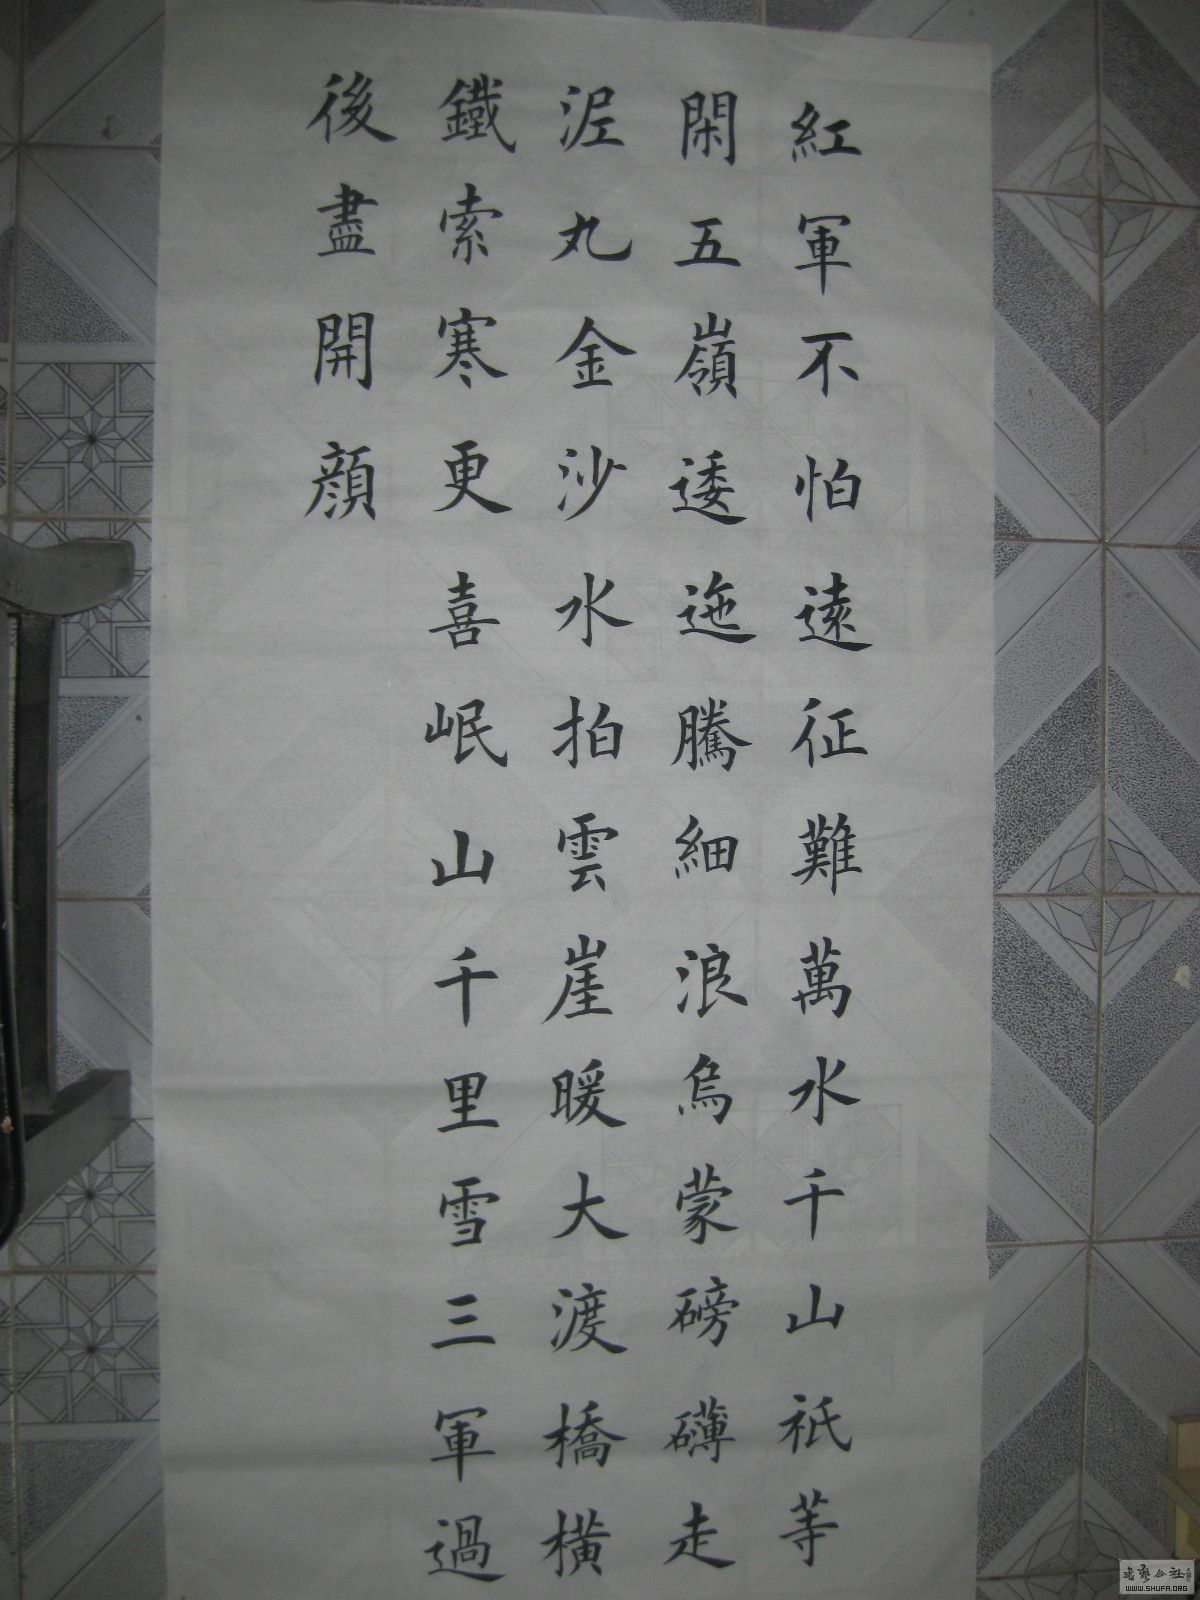 紅軍不怕遠征難萬水千山祇等
閑五嶺逶迤騰細浪烏蒙磅礴走
泥丸金沙水拍雲崖暖大渡橋橫
鐵索寒更喜岷山千里雪三軍過
後盡開顔
书艺公社
WWW.SHUFA.ORG